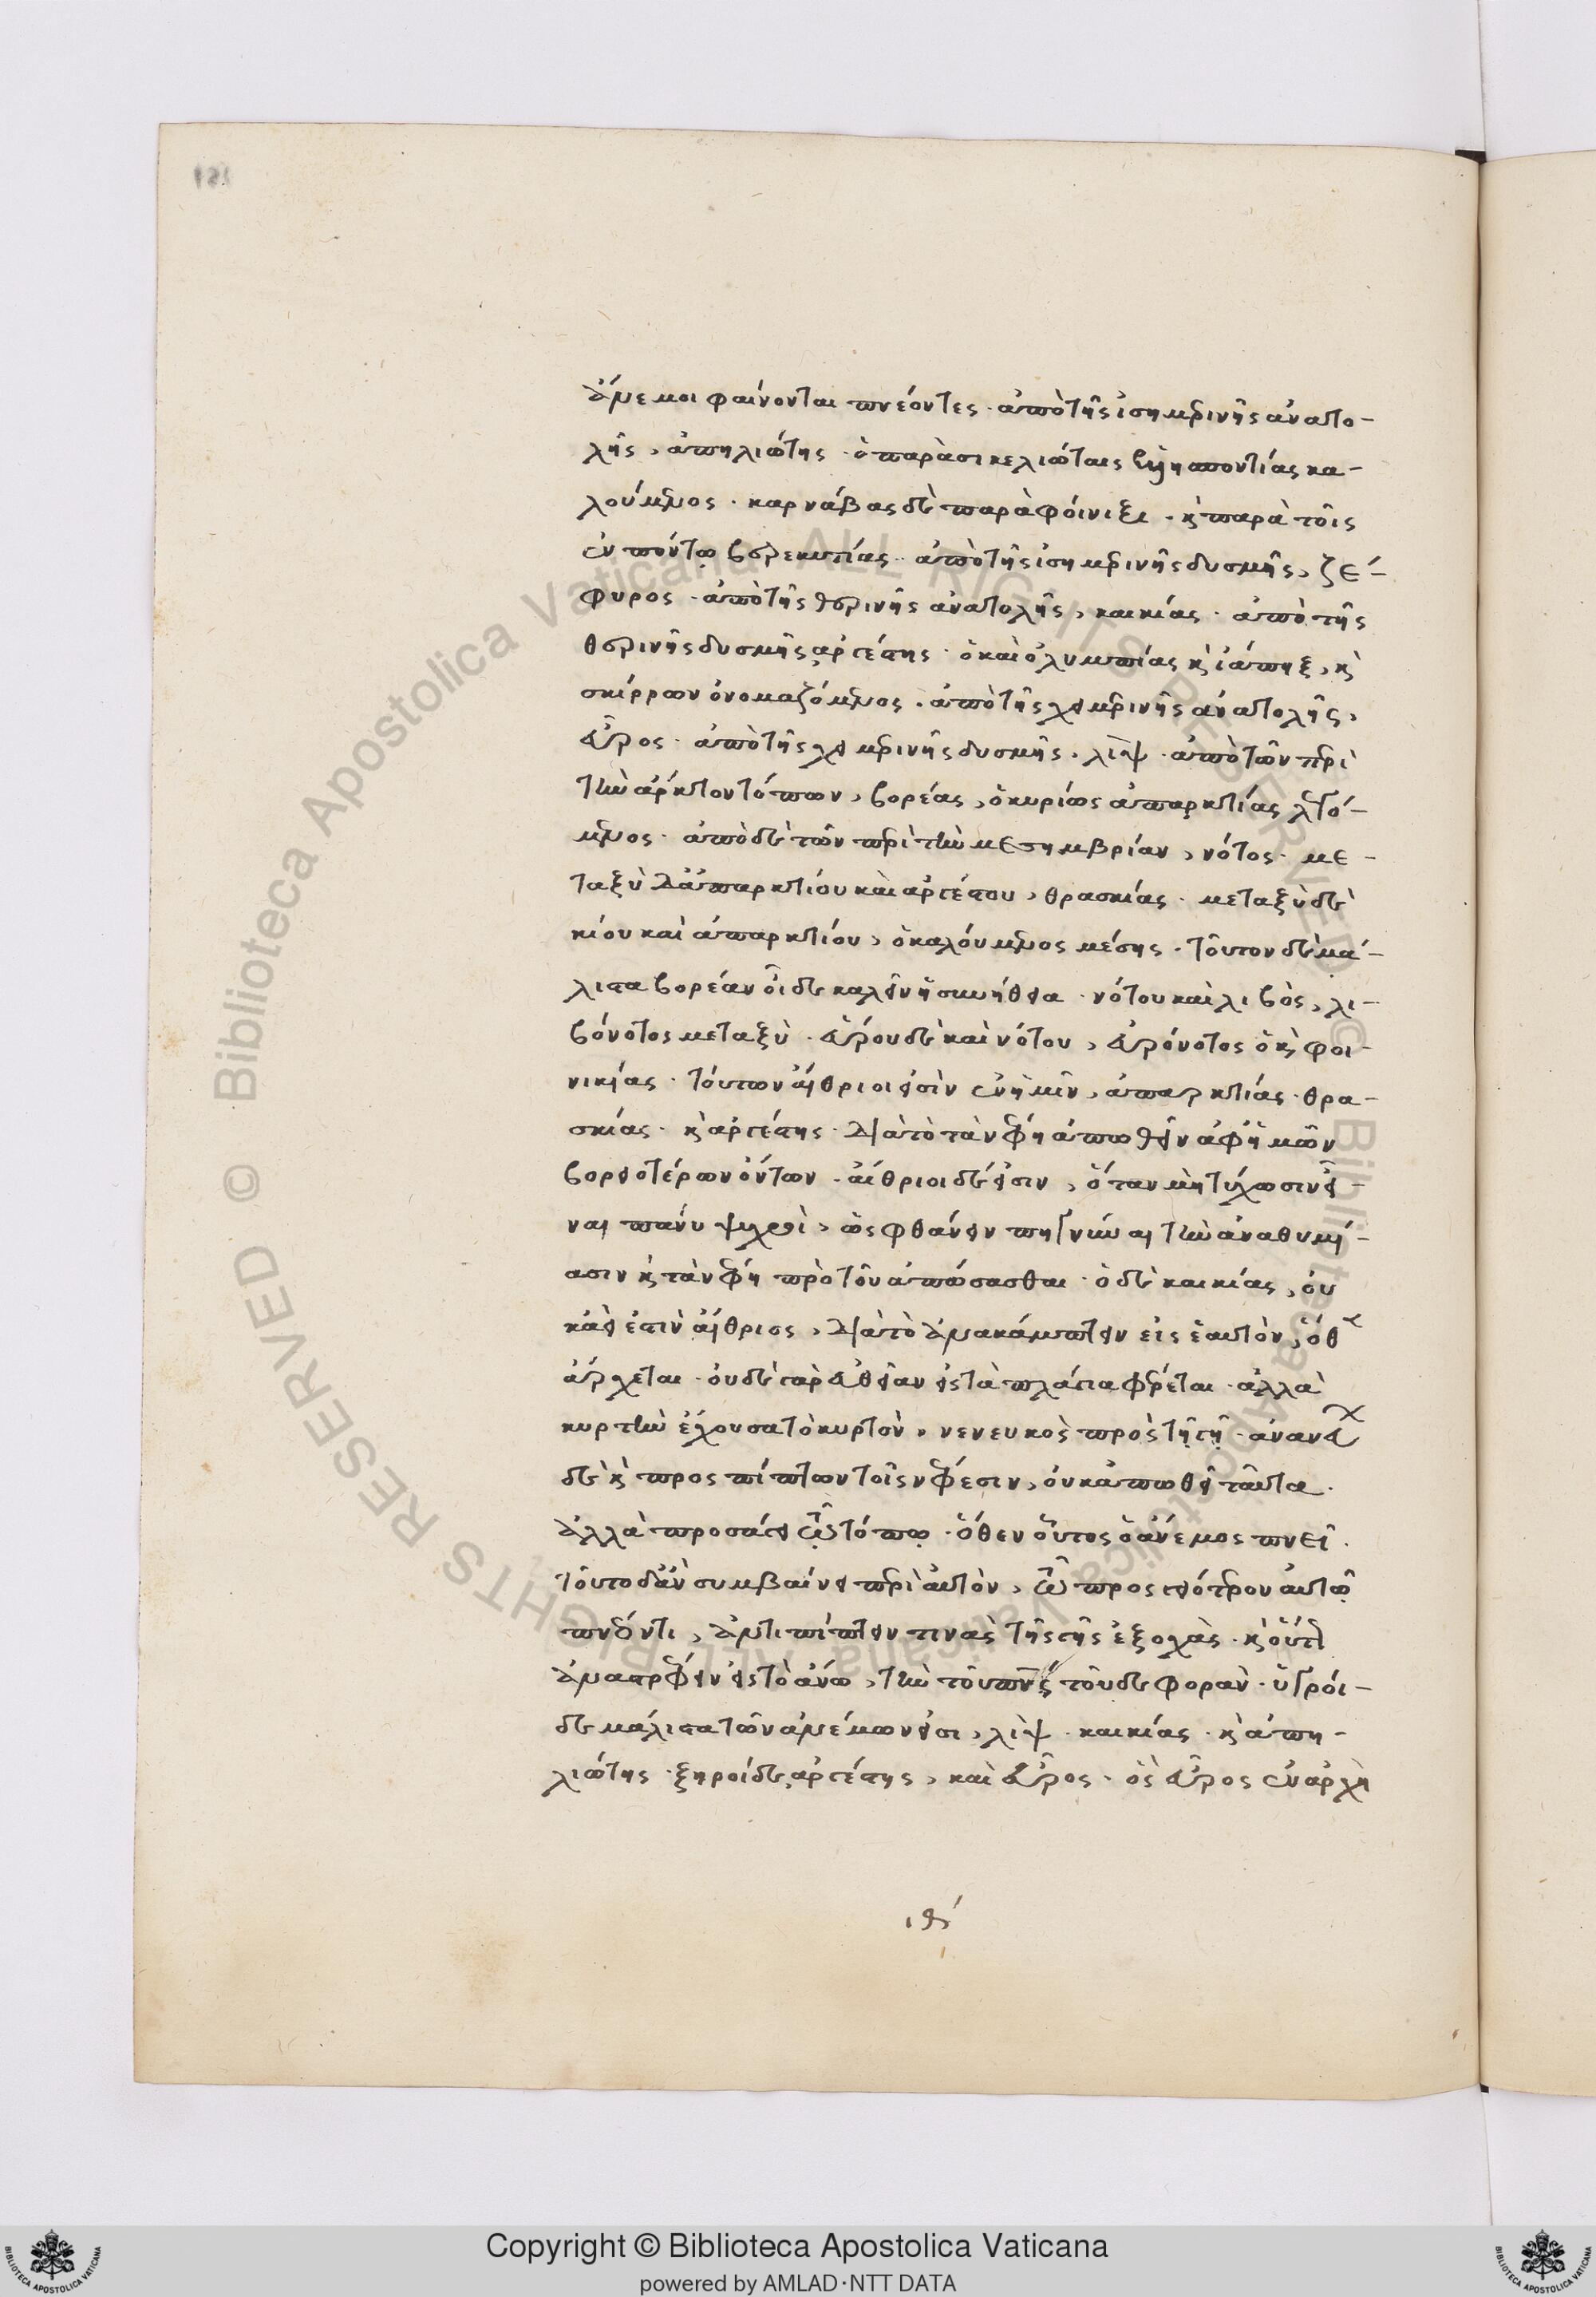 ἄνεμοι φαίνονται πνέοντες· ἀπὸ τῆς ἰσημερινῆς ἀνατο-
λῆς, ἀπηλιώτης· ὁ παρὰ σικελιώταις ποντίας κα-
λούμενος· καρνάβας δὲ παρὰ φοίνιξι· καὶ παρὰ τοῖς
ἐν πόντῳ βερεκυτίας· ἀπὸ τῆς ἰσημερινῆς δυσμῆς, ζέ-
φυρος· ἀπὸ τῆς θερινῆς ἀνατολῆς, καικίας· ἀπὸ τῆς
θερινῆς δυσμῆς ἀργέστης· ὁ καὶ ὀλυμπίας καὶ ἰάπηξ, καὶ
σκίρρων ὀνομαζόμενος· ἀπὸ τῆς χειμερινῆς ἀνατολῆς,
εὖρος· ἀπὸ τῆς χειμερινῆς δυσμῆς, λίψ· ἀπὸ τῶν περὶ
τὴν ἄρκτον τόπων, βορέας, ὁ κυρίως ἀπαρκτίας λεγό-
μενος· ἀπὸ δὲ τῶν περὶ τὴν μεσημβρίαν, νότος· με-
ταξὺ δὲ ἀπαρκτίου καὶ ἀργέστου, θρασκίας· μεταξὺ δὲ
κίου καὶ ἀπαρκτίου, ὁ καλούμενος μέσης· τοῦτον δὲ μά-
λιστα βορέαν οἵδε καλεῖν ἡ συνήθεια· νότου καὶ λιβὸς, λι-
βόνοτος μεταξὺ· εὔρου δὲ καὶ νότου, εὐρόνοτος ὁ καὶ φοι-
νικίας· τούτων αἴθριοι εἰσὶν ἐν ἡμῖν, ἀπαρκτίας· θρα-
σκίας· καὶ ἀργέστης· διὰ τὸ τὰ νέφη ἀπωθεῖν ἀφ' ἡμῶν
βορειοτέρων ὄντων· αἴθριοι δέ εἰσιν, ὅταν μὴ τύχωσιν εἶ-
ναι πάνυ ψυχροὶ, ὡς φθάνειν πηγνύναι τὴν ἀναθυμί-
ασιν καὶ τὰ νέφη πρὸ τοῦ ἀπώσασθαι· ὁ δὲ καικίας, οὐ
κἀεὶ ἐστὶν αἴθριος, διὰ τὸ ἀνακάμπτειν εἰς ἑαυτὸν, ὅθεν
ἄρχεται· οὐδὲ γὰρ εὐθεῖαν εἰς τὰ πλάγια φέρεται· ἀλλὰ
κυρτὴν ἔχουσα τὸ κυρτὸν, νενευκὸς πρὸς τῇ γῇ·
δὲ καὶ προσπίπτων τοῖς νέφεσιν, οὐκ ἀπωθεῖ ταῦτα·
ἀλλὰ προσάγει ᾧ τόπῳ· ὅθεν οὗτος ὁ ἄνεμος πνεῖ·
τοῦτο δ' ἂν συμβαίνει περὶ αὐτὸν, τῷ προσγειότερον αὐτῷ
πνέοντι, ἀντιπίπτειν τινὰς τῆς γῆς ἐξοχὰς· καὶ οὕτως
ἀναστρέφειν εἰς τὸ ἄνω, τὴν τοῦ πνεύματος τοῦδε φορὰν· ὑγροὶ
δὲ μάλιστα τῶν ἀνέμων εἰσι, λὶψ· καικίας· καὶ ἀπη-
λιώτης· ξηροὶ δὲ, ἀργέστης, καὶ εὖρος· ὃς εὖρος ἐν ἀρχῇ
ιθ΄
Copyright © Biblioteca Apostolica Vaticana
powered by AMLAD·NTT DATA